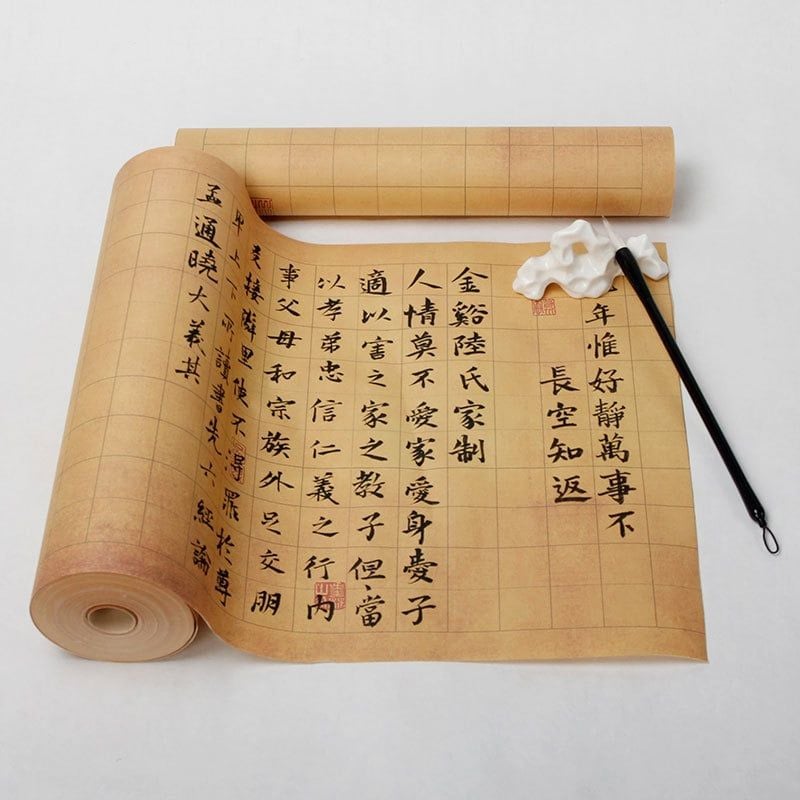 年惟好靜萬事不
長空知返
金谿陸氏家制
人情莫不愛家愛身愛子
適以害之家之教子但當
以孝弟忠信仁義之行內
事父母和宗族外交朋
友接隣里使不得罪於尊
卑上下所讀書先六經論
孟通曉大義其